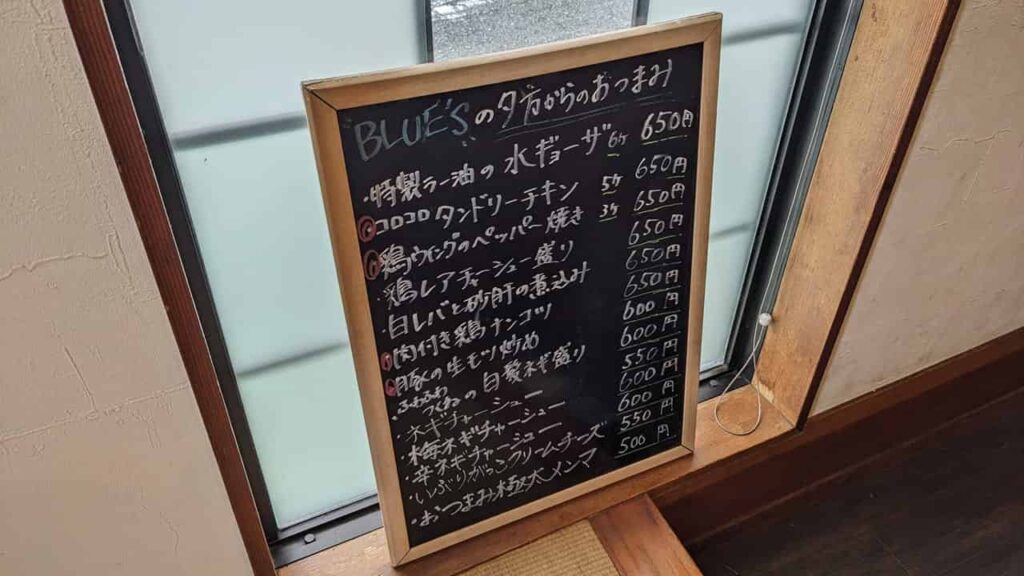 BLUE'Sの夕方からのおつまみ
・特製ラー油の水ギョーザ 6ケ 650円
コロコロタンドリーチキン 5ケ 650円
鶏ウィングのペッパー焼き 3ケ 650円
・鶏レアチャーシュー盛り 650円
・白レバと砂肝の煮込み 650円
・肉付き鶏ナンコツ 650円
豚の生モツ炒め 600円
つくねの自製ネギ盛り 600円
・ネギチャーシュー 550円
・梅ネギチャーシュー 600円
・辛ネギチャーシュー 600円
・いぶりがっこクリームチーズ 550円
・おつまみ極太メンマ 500円